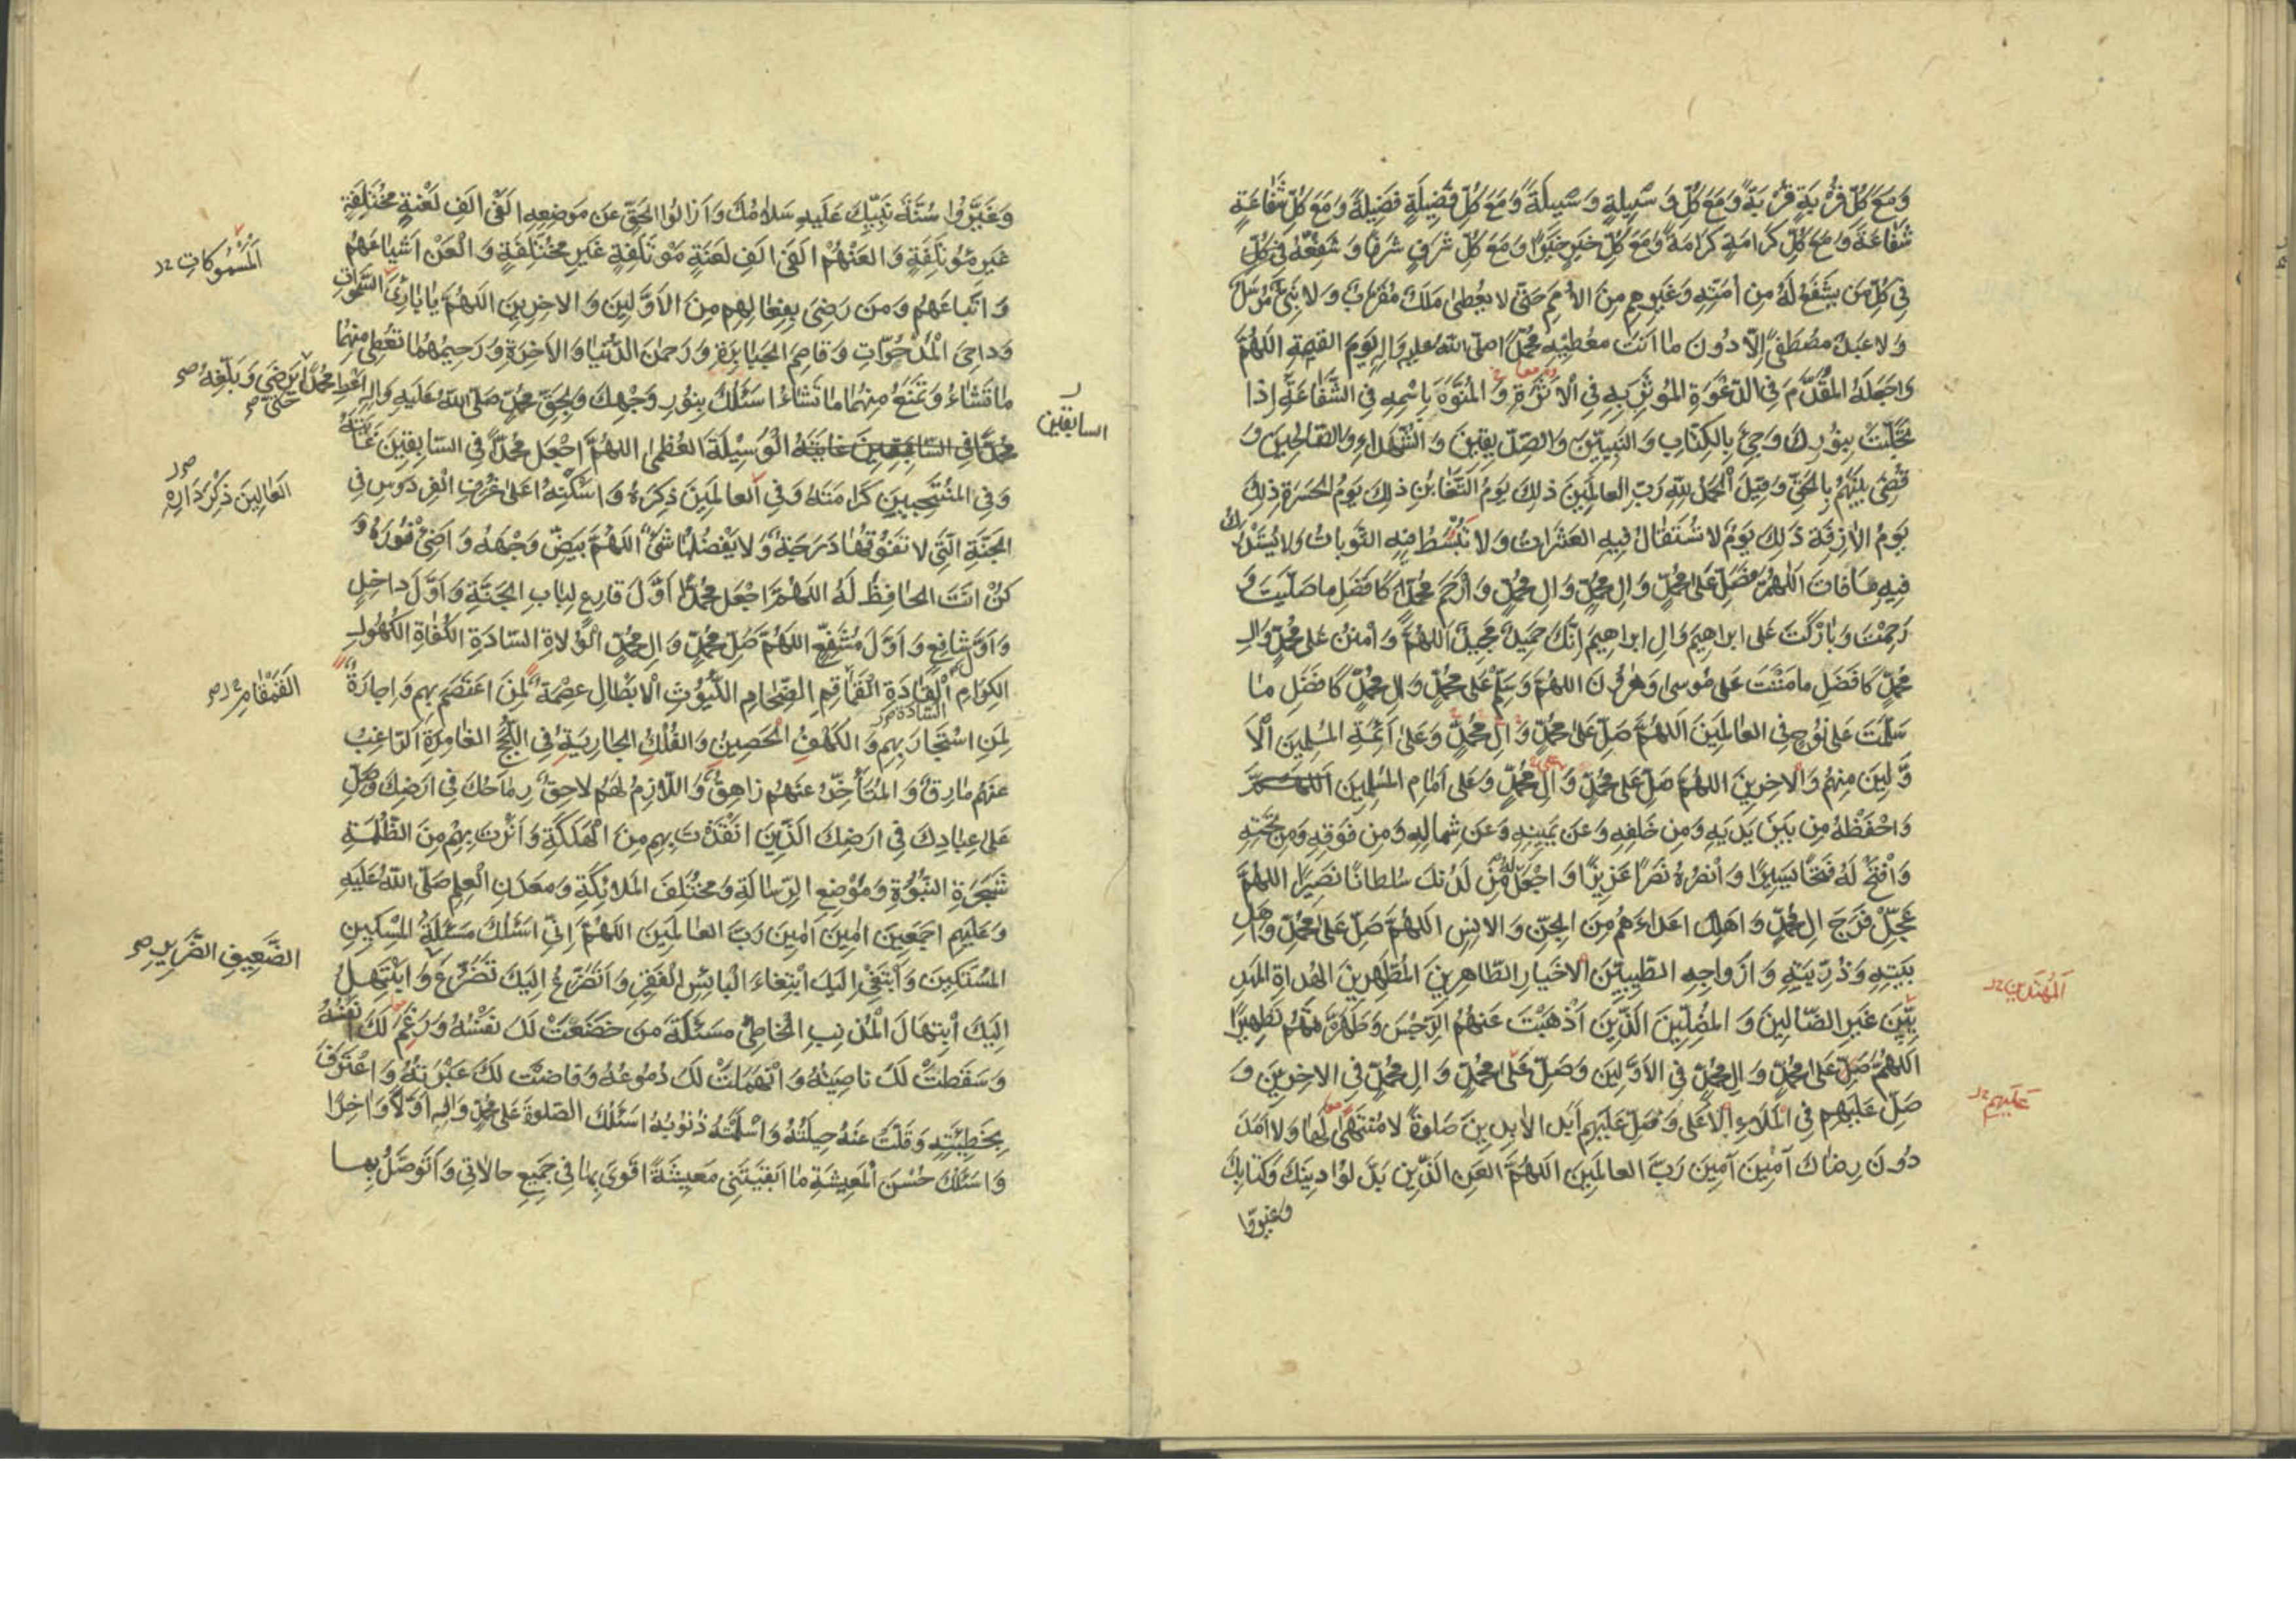 وَمَعَ كُلِّ قُرْبَةٍ قُرْبَةً وَمَعَ كُلِّ وَسِيلَةٍ وَسِيلَةً وَمَعَ كُلِّ فَضِيلَةٍ فَضِيلَةً وَمَعَ كُلِّ شَفَاعَةٍ
شَفَاعَةً وَمَعَ كُلِّ كَرَامَةٍ كَرَامَةً وَمَعَ كُلِّ خَيْرٍ خَيْرًا وَمَعَ كُلِّ شَرَفٍ شَرَفًا وَشَفِّعْهُ فِي كُلِّ
فِي كُلِّ مَن يَشْفَعُ لَهُ مِن أُمَّتِهِ وَغَيْرِهِم مِنَ الأُمَمِ حَتَّى لا يُعْطَى مَلَكٌ مُقَرَّبٌ وَلا نَبِيٌّ مُرْسَلٌ
وَلا عَبْدٌ مُصْطَفًى إِلّا دُونَ مَا أَنْتَ مُعْطِيهِ مُحَمَّدًا صَلَّى اللهُ عَلَيْهِ وَآلِهِ يَوْمَ القِيمَةِ اللهُمَّ
وَاجْعَلْهُ المُقَدَّمَ فِي الدَّعْوَةِ المُوثَرَ بِهِ فِي الأَثَرَةِ وَالمُنَوَّهَ بِاسْمِهِ فِي الشَّفَاعَةِ إِذَا
تَجَلَّيْتَ بِنُورِكَ وَجِيءَ بِالكِتَابِ وَالنَّبِيِّينَ وَالصِّدِّيقِينَ وَالشُّهَدَاءِ وَالصَّالِحِينَ وَ
قُضِيَ بَيْنَهُمْ بِالحَقِّ وَقِيلَ الحَمْدُ لِلّهِ رَبِّ العَالَمِينَ ذلِكَ يَوْمُ التَّغَابُنِ ذلِكَ يَوْمُ الحَسْرَةِ ذلِكَ
يَوْمُ الأزِفَةِ ذلِكَ يَوْمٌ لا تُسْتَقَالُ فِيهِ العَثَرَاتُ وَلا تُبْسَطُ فِيهِ التَّوْبَاتُ وَلا يُسْتَدْرَكُ
فِيهِ مَا فَاتَ اللهُمَّ فَصَلِّ عَلَى مُحَمَّدٍ وَآلِ مُحَمَّدٍ وَآلِ مُحَمَّدٍ وَارْحَمْ مُحَمَّدًا كَأَفْضَلِ مَا صَلَّيْتَ وَ
رَحِمْتَ وَبَارَكْتَ عَلَى إِبْرَاهِيمَ وَآلِ إِبْرَاهِيمَ إِنَّكَ حَمِيدٌ مَجِيدٌ اللهُمَّ وَامْنُنْ عَلَى مُحَمَّدٍ وَآلِ
مُحَمَّدٍ كَأَفْضَلِ مَا مَنَنْتَ عَلَى مُوسَى وَهرُونَ اللهُمَّ وَسَلِّمْ عَلَى مُحَمَّدٍ وَآلِ مُحَمَّدٍ كَأَفْضَلِ مَا
سَلَّمْتَ عَلَى نُوحٍ فِي العَالَمِينَ اللهُمَّ صَلِّ عَلَى مُحَمَّدٍ وَآلِ مُحَمَّدٍ وَعَلَى أَئِمَّةِ المُسْلِمِينَ الأَ
وَّلِينَ مِنْهُمْ وَالآخِرِينَ اللهُمَّ صَلِّ عَلَى مُحَمَّدٍ وَآلِ مُحَمَّدٍ وَعَلَى إِمَامِ المُسْلِمِينَ اللهُمَّ
وَاحْفَظْهُ مِن بَيْنِ يَدَيْهِ وَمِن خَلْفِهِ وَعَن يَمِينِهِ وَعَن شِمَالِهِ وَمِن فَوْقِهِ وَمِن تَحْتِهِ
وَافْتَحْ لَهُ فَتْحًا يَسِيرًا وَانْصُرْهُ نَصْرًا عَزِيزًا وَاجْعَلْ لَهُ مِن لَدُنْكَ سُلْطَانًا نَصِيرًا اللهُمَّ
عَجِّلْ فَرَجَ آلِ مُحَمَّدٍ وَأَهْلِكْ أَعْدَاءَهُم مِنَ الجِنِّ وَالإِنْسِ اللهُمَّ صَلِّ عَلَى مُحَمَّدٍ وَأَهْلِ
بَيْتِهِ وَذُرِّيَّتِهِ وَأَزْوَاجِهِ الطَّيِّبِينَ الأَخْيَارِ الطَّاهِرِينَ المُطَهَّرِينَ الهُدَاةِ المَهْدِ
المُهْتَدِينَ
يِّينَ غَيْرِ الضَّالِّينَ وَالمُضِلِّينَ الَّذِينَ أَذْهَبْتَ عَنْهُمُ الرِّجْسَ وَطَهَّرْتَهُمْ تَطْهِيرًا
اللهُمَّ صَلِّ عَلَى مُحَمَّدٍ وَآلِ مُحَمَّدٍ فِي الأَوَّلِينَ وَصَلِّ عَلَى مُحَمَّدٍ وَآلِ مُحَمَّدٍ فِي الآخِرِينَ وَ
عَلَيْهِم
صَلِّ عَلَيْهِم فِي المَلَاءِ الأَعْلَى وَصَلِّ عَلَيْهِم أَبَدَ الآبِدِينَ صَلوةً لا مُنْتَهَى لَهَا وَلا أَمَدَ
دُونَ رِضَاكَ آمِينَ آمِينَ رَبَّ العَالَمِينَ اللهُمَّ العَنِ الَّذِينَ بَدَّلُوا دِينَكَ وَكِتَابَكَ
وغيروا
وَغَيَّرُوا سُنَّةَ نَبِيِّكَ عَلَيْهِ سَلَامُكَ وَأَزَالُوا الحَقَّ عَن مَوْضِعِهِ أَلْفَيْ أَلْفِ لَعْنَةٍ مُخْتَلِفَةٍ
غَيْرِ مُؤْتَلِفَةٍ وَالعَنْهُمْ أَلْفَيْ أَلْفِ لَعْنَةٍ مُؤْتَلِفَةٍ غَيْرِ مُخْتَلِفَةٍ وَالْعَنْ أَشْيَاعَهُمْ
المَسْمُوكَاتِ
وَأَتْبَاعَهُم وَمَن رَضِيَ بِفِعَالِهِم مِنَ الأَوَّلِينَ وَالآخِرِينَ اللهُمَّ يَا بَارِئَ السَّموَاتِ
وَدَاحِيَ المَدْحُوَّاتِ وَقَاصِمَ الجَبَابِرَةِ وَرَحْمنَ الدُّنْيَا وَالآخِرَةِ وَرَحِيمَهُمَا تُعْطِي مِنْهُمَا
مَا تَشَاءُ وَتَمْنَعُ مِنْهُمَا مَا تَشَاءُ أَسْئَلُكَ بِنُورِ وَجْهِكَ وَبِحَقِّ مُحَمَّدٍ صَلَّى اللهُ عَلَيْهِ وَآلِهِ أَعْطِ مُحَمَّدًا حَتَّى يَرْضَى وَبَلِّغْهُ
السابقين
مُحَمَّدًا فِي السَّابِقِينَ غَايَتَهُ الوَسِيلَةَ العُظْمَى اللهُمَّ اجْعَلْ مُحَمَّدًا فِي السَّابِقِينَ غَايَتَهُ
وَفِي المُنْتَجَبِينَ كَرَامَتَهُ وَفِي العَالَمِينَ ذِكْرَهُ وَأَسْكِنْهُ أَعْلَى غُرَفِ الفِرْدَوْسِ فِي
العَالِينَ ذِكْرَ دَارِهِ
الجَنَّةِ الَّتِي لا تَفُوقُهَا دَرَجَةٌ وَلا يَفْضُلُهَا شَيْءٌ اللهُمَّ بَيِّضْ وَجْهَهُ وَأَضِئْ نُورَهُ وَ
كُنْ أَنْتَ الحَافِظَ لَهُ اللهُمَّ اجْعَلْ مُحَمَّدًا أَوَّلَ قَارِعٍ لِبَابِ الجَنَّةِ وَأَوَّلَ دَاخِلٍ
وَأَوَّلَ شَافِعٍ وَأَوَّلَ مُشَفَّعٍ اللهُمَّ صَلِّ مُحَمَّدٍ وَآلِ مُحَمَّدٍ الوُلاةِ السَّادَةِ الكُفَاةِ الكُهُولِ
الكِرَامِ القَادَةِ القَمَاقِمِ الضِّخَامِ اللُّيُوثِ الأَبْطَالِ عِصْمَةً لِمَنِ اعْتَصَمَ بِهِم وَإِجَارَةً
القَمْقَامِ
السَّادَة
لِمَنِ اسْتَجَارَ بِهِم وَالكَهْفِ الحَصِينِ وَالفُلْكِ الجَارِيَةِ فِي اللُّجَجِ الغَامِرَةِ الرَّاغِبُ
عَنْهُم مَارِقٌ وَالمُتَأَخِّرُ عَنْهُم زَاهِقٌ وَاللّازِمُ لَهُم لاحِقٌ رِمَاحُكَ فِي أَرْضِكَ وَصَلِّ
عَلَى عِبَادِكَ فِي أَرْضِكَ الَّذِينَ أَنْقَذْتَ بِهِم مِنَ الهَلَكَةِ وَأَنَرْتَ بِهِم مِنَ الظُّلْمَةِ
شَجَرَةِ النُّبُوَّةِ وَمَوْضِعِ الرِّسَالَةِ وَمُخْتَلَفِ المَلائِكَةِ وَمَعْدَنِ العِلْمِ صَلَّى اللهُ عَلَيْهِ
وَعَلَيْهِم أَجْمَعِينَ آمِينَ آمِينَ رَبَّ العَالَمِينَ اللهُمَّ إِنِّي أَسْئَلُكَ مَسْئَلَةَ المِسْكِينِ
الضَّعِيفِ الضَّرِيرِ
المُسْتَكِينِ وَأَبْتَغِي إِلَيْكَ ابْتِغَاءَ البَائِسِ الفَقِيرِ وَأَتَضَرَّعُ إِلَيْكَ تَضَرُّعَ وَأَبْتَهِلُ
إِلَيْكَ ابْتِهَالَ المُذْنِبِ الخَاطِئِ مَسْئَلَةَ مَن خَضَعَتْ لَكَ نَفْسُهُ وَرَغِمَ لَكَ أَنْفُهُ
وَسَقَطَتْ لَكَ نَاصِيَتُهُ وَانْهَمَلَتْ لَكَ دُمُوعُهُ وَفَاضَتْ لَكَ عَبْرَتُهُ وَاعْتَرَفَ
بِخَطِيئَتِهِ وَقَلَّتْ عَنْهُ حِيلَتُهُ وَأَسْلَمَتْهُ ذُنُوبُهُ أَسْئَلُكَ الصَّلوةَ عَلَى مُحَمَّدٍ وَآلِهِ أَوَّلًا وَآخِرًا
وَأَسْئَلُكَ حُسْنَ المَعِيشَةِ مَا أَبْقَيْتَنِي مَعِيشَةً أَقْوَى بِهَا فِي جَمِيعِ حَالاتِي وَأَتَوَصَّلُ بِهَا